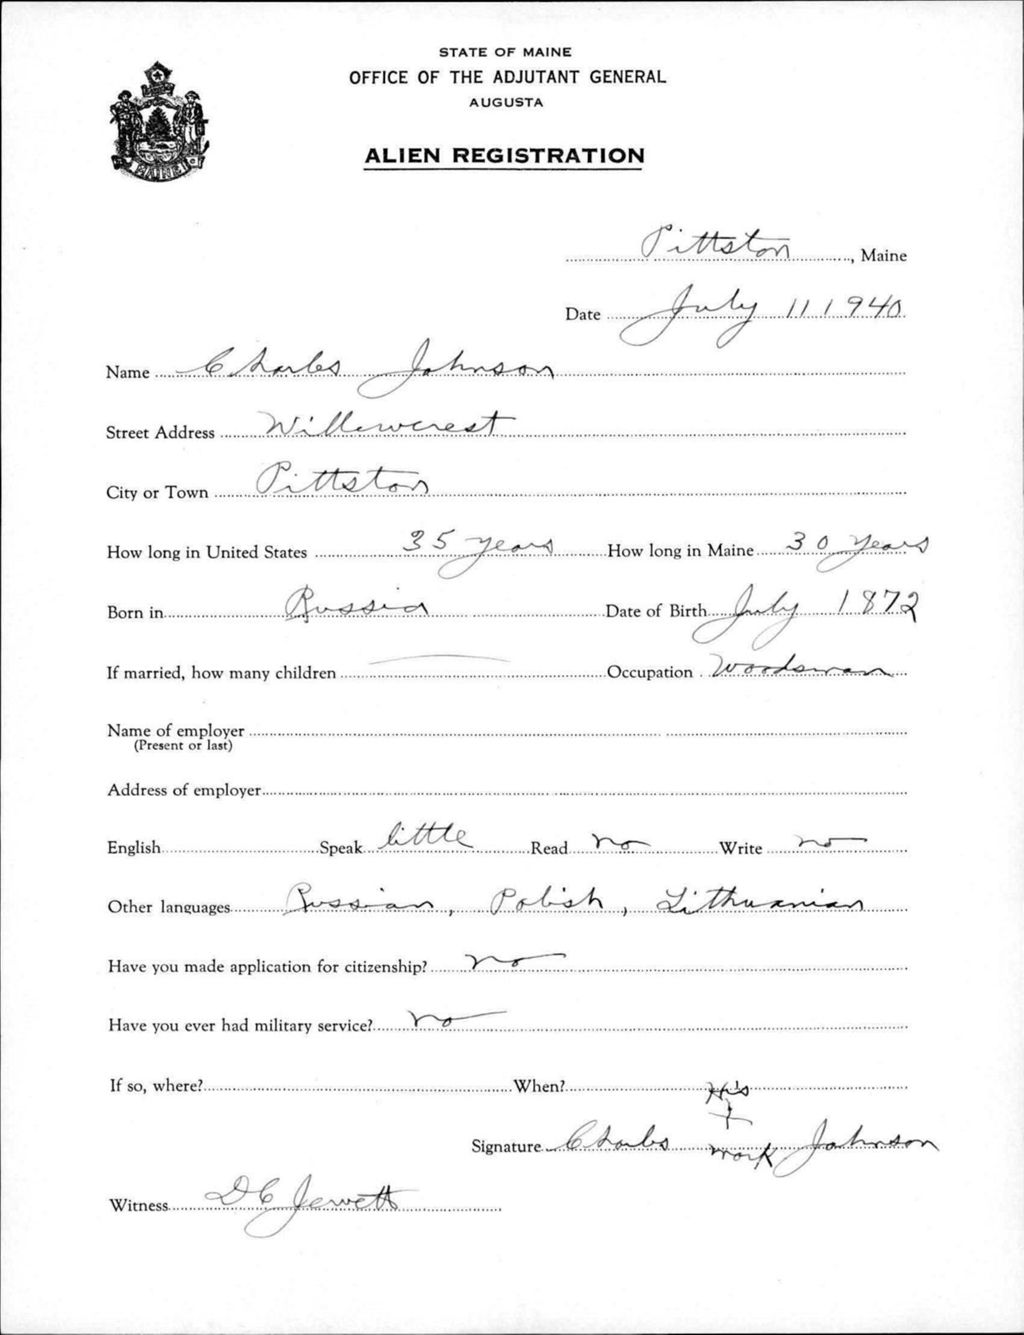 STATE OF MAINE
OFFICE OF THE ADJUTANT GENERAL
AUGUSTA
ALIEN REGISTRATION
MAINE
Pittston, Maine
Date July 11 1940
Name Charles Johnson
Street Address Willowcrest
City or Town Pittston
How long in United States 35 years How long in Maine 30 years
Born in Russia Date of Birth July 1872
If married, how many children — Occupation Woodsman
Name of employer
(Present or last)
Address of employer
English Speak little Read no Write no
Other languages Russian, Polish, Lithuanian
Have you made application for citizenship? no
Have you ever had military service? no
If so, where? When?
His
X
Signature Charles mark Johnson
Witness D C Jewett